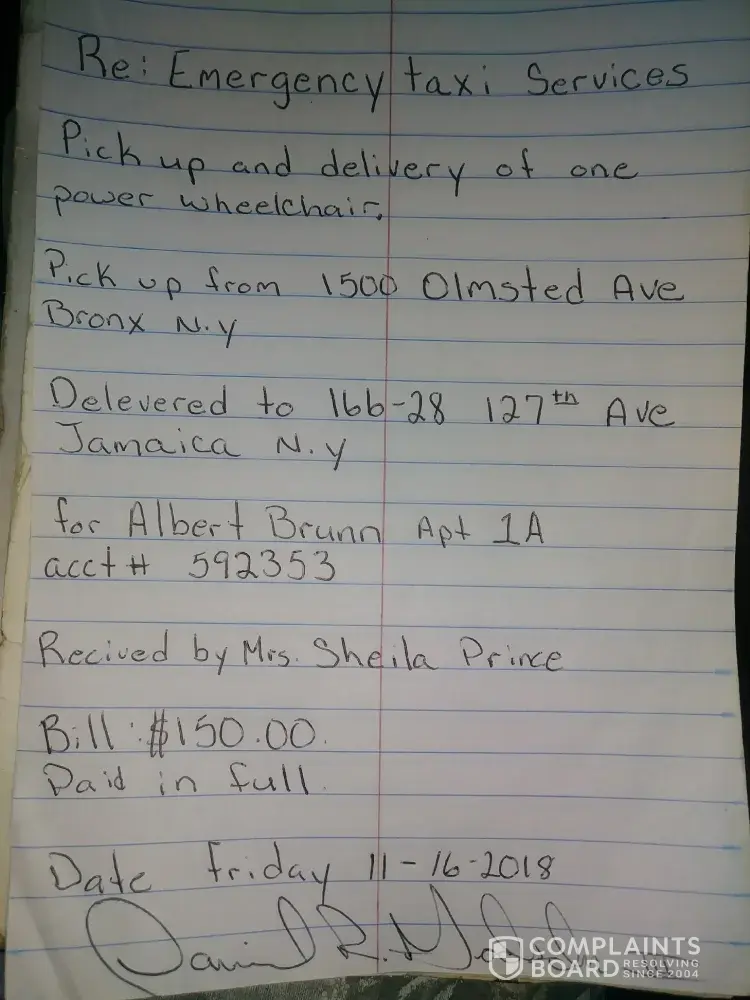 Re: Emergency taxi Services
Pick up and delivery of one
power wheelchair.
Pick up from 1500 Olmsted Ave
Bronx N.y
Delevered to 166-28 127th Ave
Jamaica N.y
for Albert Brunn Apt 1A
acct # 592353
Recived by Mrs. Sheila Prince
Bill: $150.00.
Paid in full.
Date Friday 11-16-2018
David R.
COMPLAINTS
BOARD RESOLVING
SINCE 2004